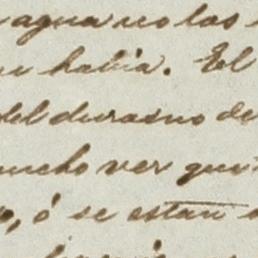 agua no los
había. El
del durasno de
mucho ver que
ó se estan